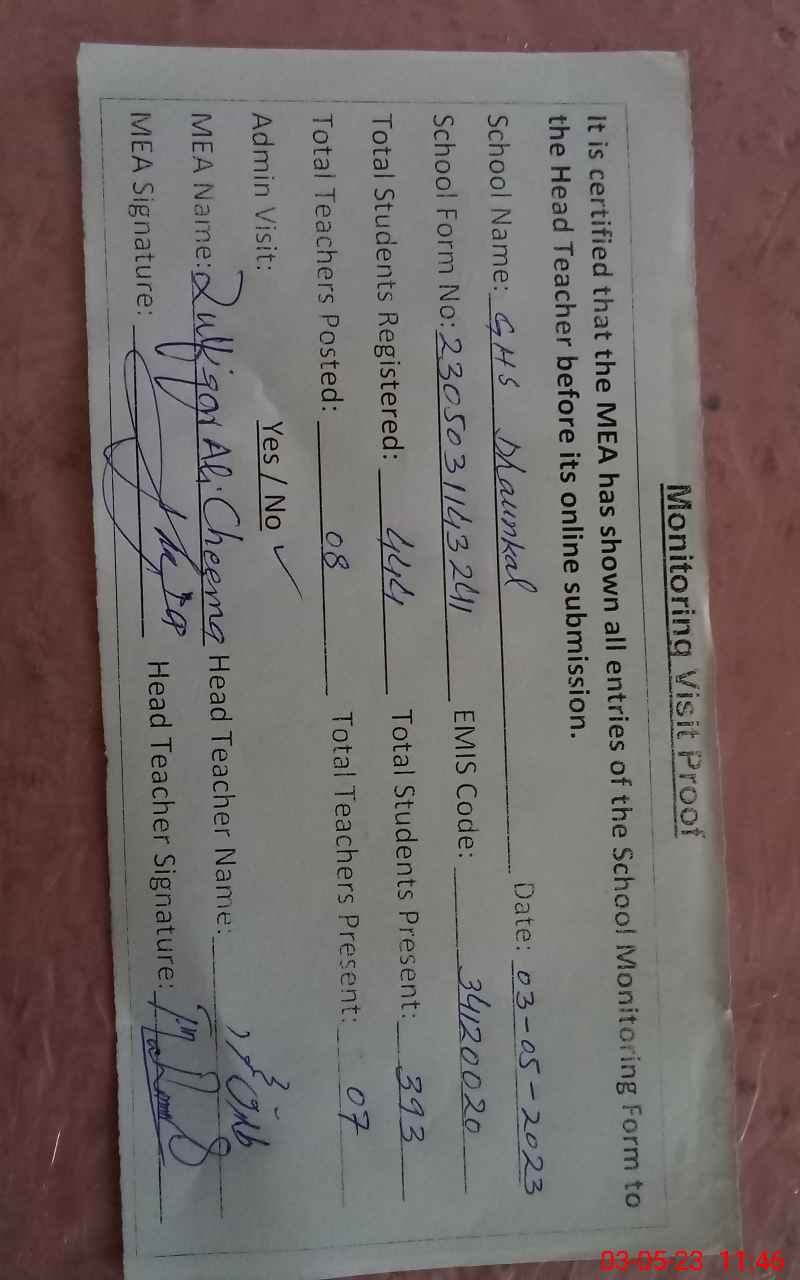 Monitoring Visit Proof
It is certified that the MEA has shown all entries of the School Monitoring Form to
the Head Teacher before its online submission.
School Name: GHS Dhaunkal Date: 03-05-2023
School Form No: 2305031143241 EMIS Code: 34120020
Total Students Registered: 444 Total Students Present: 393
Total Teachers Posted: 08 Total Teachers Present: 07
Admin Visit: Yes / No ✓
MEA Name: Zulfiqar Ali Cheema Head Teacher Name:
MEA Signature: Head Teacher Signature:
03-05-23 11:46